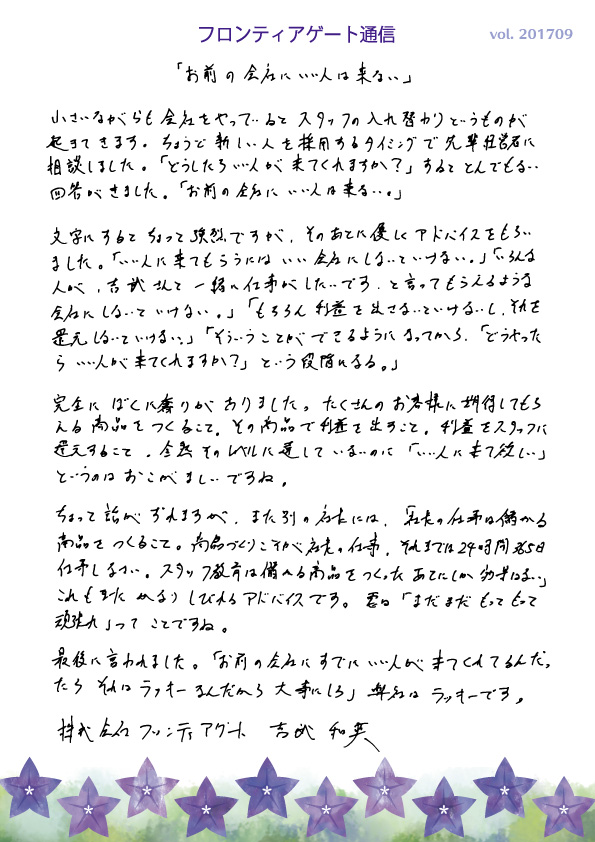 フロンティアゲート通信
vol. 201709
「お前の会社にいい人は来ない」
小さいながらも会社をやっているとスタッフの入れ替わりというものが
起きてきます。ちょうど新しい人を採用するタイミングで先輩経営者に
相談しました。「どうしたらいい人が来てくれますか?」するととんでもない
回答がきました。「お前の会社にいい人は来ない。」
文字にするとちょっと強烈ですが、そのあとに優しくアドバイスをもらい
ました。「いい人に来てもらうにはいい会社にしないといけない。」「いろんな
人が、吉武さんと一緒に仕事がしたいです、と言ってもらえるような
会社にしないといけない。」「もちろん利益を出さないといけないし、それを
還元しないといけない」「そういうことができるようになってから、「どうやった
らいい人が来てくれますか?」という段階になる。」
完全にぼくに奢りがありました。たくさんのお客様に期待してもら
える商品をつくること、その商品で利益を出すこと、利益をスタッフに
還元すること、全然そのレベルに達していないのに「いい人に来て欲しい」
というのはおこがましいですね。
ちょっと話がずれますが、また別の社長には、「社長の仕事は儲かる
商品をつくること。商品づくりこそが社長の仕事、それまでは24時間365日
仕事しなさい。スタッフ教育は儲かる商品をつくったあとにしか効果はない」
これもまたかなりしびれるアドバイスです。要は「まだまだもっともっと
頑張れ」ってことですね。
最後に言われました。「お前の会社にすでにいい人が来てくれてるんだっ
たらそれはラッキーなんだから大事にしろ」弊社はラッキーです。
株式会社フロンティアゲート 吉武 和英